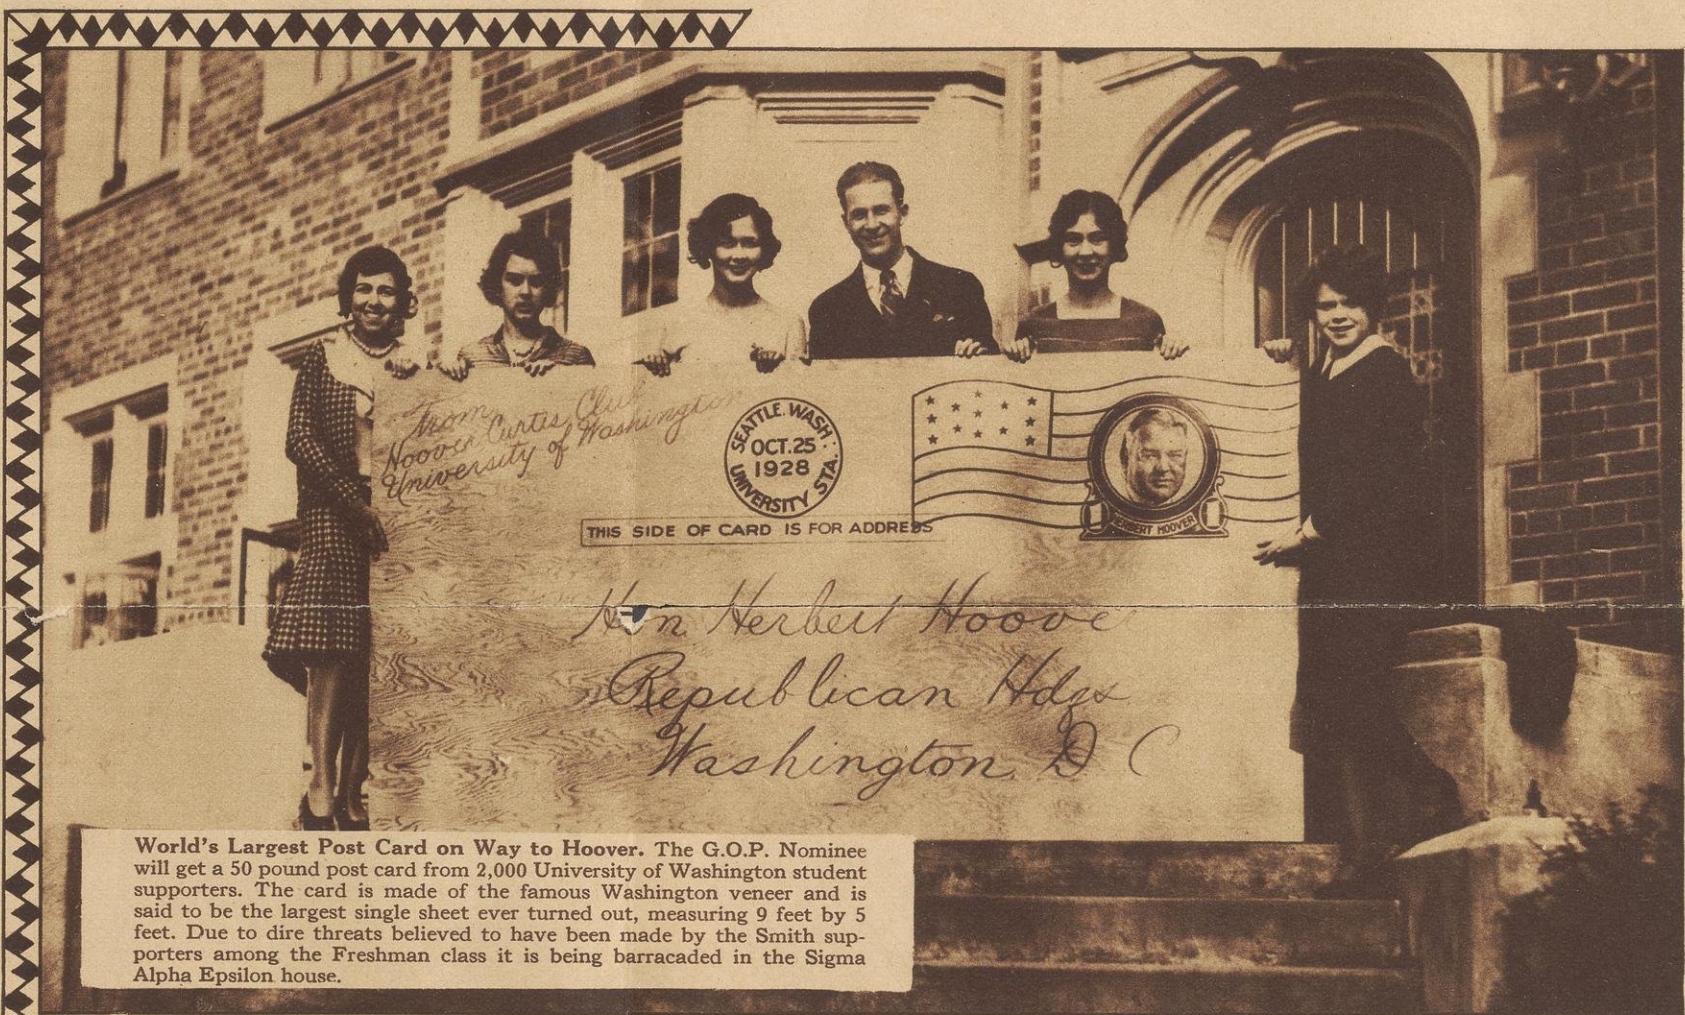 From
Hoover Curtis Club
University of Washington
SEATTLE. WASH.
OCT. 25
1928
UNIVERSITY STA.
HERBERT HOOVER
THIS SIDE OF CARD IS FOR ADDRESS
Hon Herbert Hoover
Republican Hdqs
Washington D C
World's Largest Post Card on Way to Hoover. The G.O.P. Nominee
will get a 50 pound post card from 2,000 University of Washington student
supporters. The card is made of the famous Washington veneer and is
said to be the largest single sheet ever turned out, measuring 9 feet by 5
feet. Due to dire threats believed to have been made by the Smith sup-
porters among the Freshman class it is being barracaded in the Sigma
Alpha Epsilon house.